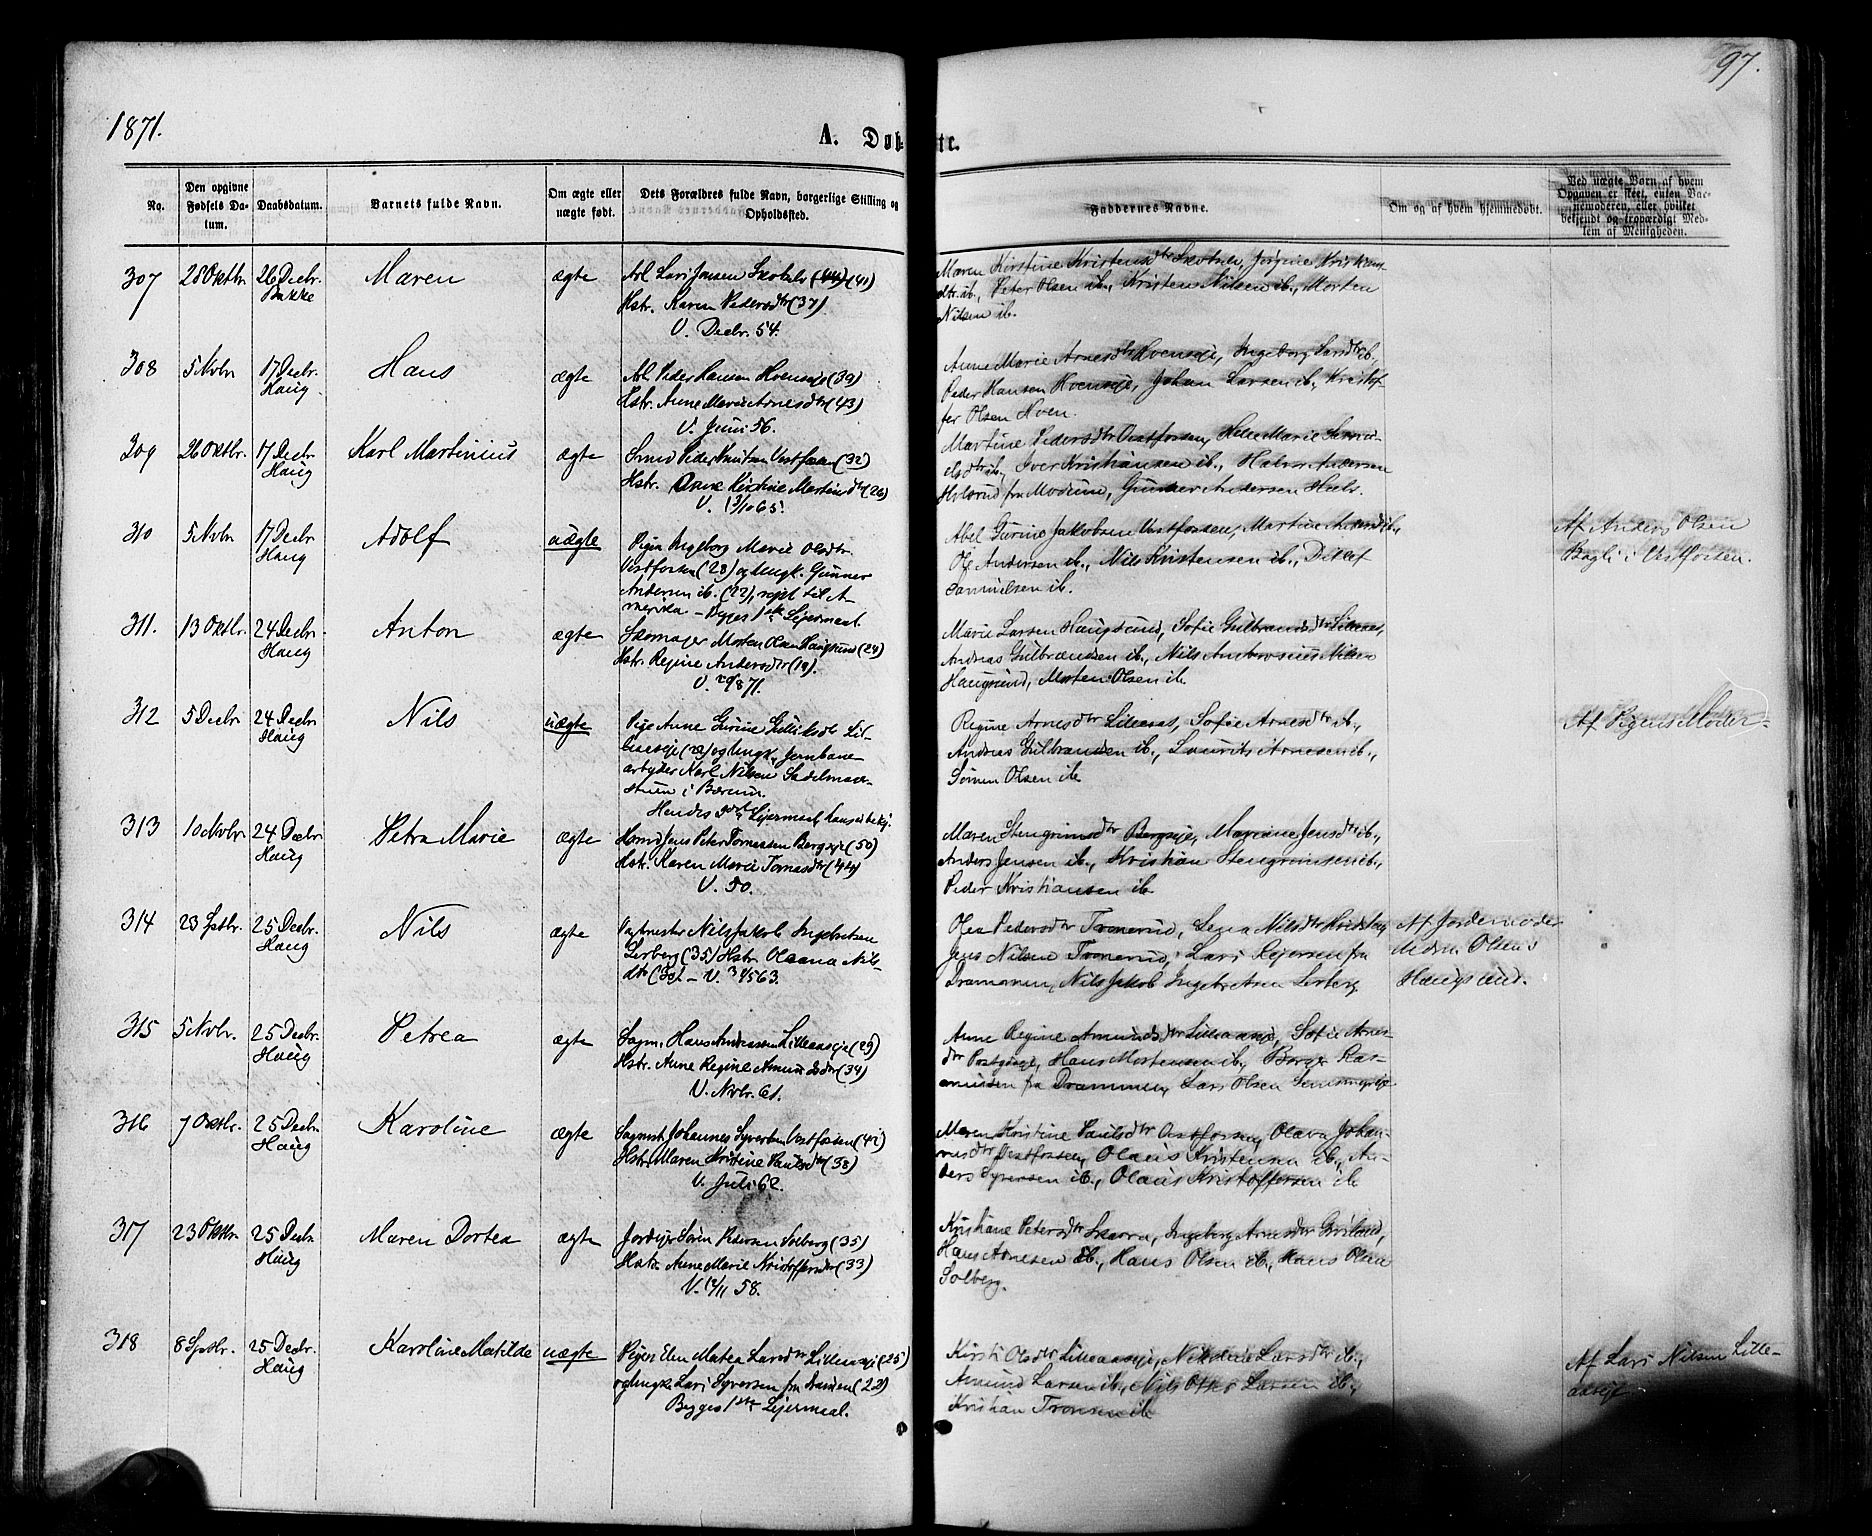 1871.
97.
A. Døbte.
No.
Den opgivne Fødsels Datum.
Daabsdatum.
Barnets fulde Navn.
Om ægte eller uægte født.
Dets Forældres fulde Navn, borgerlige Stilling og Opholdssted.
Faddernes Navne.
Om og af hvem hjemmedøbt.
Ved uægte Børn af hvem Opgaven er skeet, enten Barnemoderen, eller hvilket bekjendt og troværdigt Medlem af Menigheden.
307
28 Oktbr.
26 Decbr. Bakke
Maren
ægte
Arb. Lars Jensen (41)
Hstr. Karen Pedersdtr (37)
V. Decbr. 54.
Maren Kirstine Kristensdtr, Jørgine Kristians-
dtr. ib., Peter Olsen ib., Kristen Nilsen ib., Morten
Nilsen ib.
308
5 Nvbr
17 Decbr. Haug.
Hans
ægte
Arb. Peder Hansen Hvenseje (39)
Hstr. Anne Marie Arnesdtr (43)
V. Juni 56.
Anne Marie Arnesdtr Hvenseje, Ingeborg Larsdtr ib.,
Peder Hansen Hvenseje, Johan Larsen ib., Kristof-
fer Olsen Hven.
309
26 Oktbr.
17 Decbr Haug
Karl Martinius
ægte
Smed Peder Knutsen Vestfossen (32)
Hstr. Kirstine Martinsdtr (26)
V. 13/10 65.
Martine Pedersdtr Vestfossen, Helle Marie
ib., Iver Kristiansen ib., Halvor Andersen
fra Modum, Gunner Andersen
310
5 Nvbr
17 Decbr Haug
Adolf
uægte
Pigen Ingeborg Marie Olsdtr.
Vestfossen (28) og Ungk. Gunner
Andersen ib. (22), rejst til A-
merika – Begges 1ste Lejermaal
Abel Gurine Jakobsen Vestfossen, Martine ib.,
Ole Andersen ib., Nils Kristensen ib., Ditlef
Samuelsen ib.
Af Anders Olsen
i Vestfossen.
311.
13 Oktbr.
24 Decbr. Haug
Anton
ægte
Skomager Morten Olsen Haugsund (24)
Hstr. Regine Andersdtr (19).
V. 71.
Marie Larsen Haugsund, Sofie Gulbrandsdtr Lilleaas,
Andreas Gulbrandsen ib., Nils Ambrosius Nilsen
Haugsund, Morten Olsen ib
312
5 Decbr
24 Decbr. Haug
Nils
uægte
Pige Anne Gurine Gulliksdtr Lil-
leaaseje og Ungk. Jernbane-
arbejder Karl Nilsen
i Bærum.
Hendes Lejermaal, hans
Regine Arnesdtr Lilleaas, Sofie Arnesdtr ib.,
Andreas Gulbrandsen ib., Laurits Arnesen ib.,
Simen Olsen ib
Af Pigens Moder –
313
10 Nvbr
24 Decbr Haug
Petra Marie
ægte
Jens Peter Tomassen Bergseje (50)
Hstr. Karen Marie Tomasdtr (44)
V. 50.
Maren Stengrimsdtr Bergseje, Mariane Jensdtr ib.,
Anders Jensen ib., Kristian Stengrimsen ib.,
Peder Kristiansen ib
314
23 Sptbr.
25 Decbr. Haug
Nils
ægte
Nils Jakob Ingebretsen
Lerberg (35) Hstr. Oleana Nils-
dtr – V. 63.
Olea Pedersdtr Tronerud, Lena Nilsdtr
Jens Nilsen Tronerud, Lars Rejersen fra
Drammen, Nils Jakob Ingebretsen Lerberg
Af Jordemoder
Mdm Olsen
Haugsund.
315
5 Nvbr.
25 Decbr. Haug
Petrea
ægte
Sagm. Hans Andreassen Lilleaaseje (29)
Hstr. Anne Regine Amundsdtr (34)
V. Nvbr. 61.
Anne Regine Amundsdtr Lilleaaseje, Sofie Arnes-
dtr, Hans Mortensen ib., Børge Ras-
mussen fra Drammen, Lars Olsen
316
7 Oktbr.
25 Decbr. Haug
Karoline
ægte
Sagmst. Johannes Syversen Vestfossen (42)
Hstr. Maren Kristine Paulsdtr (38)
V. Juli 62.
Maren Kristine Paulsdtr Vestfossen, Olava Johan-
nesdtr Vestfossen, Olaus Kristensen ib., An-
ders Syversen ib., Olaus Kristoffersen ib
317
23 Oktbr.
25 Decbr Haug
Maren Dortea
ægte
Jordejer Søren Pedersen Solberg (35)
Hstr. Anne Marie Kristoffersdtr (33)
V. 12/11 58.
Kristiane Petersdtr Skarra, Ingeborg Arnesdtr,
Hans Arnesen ib., Hans Olsen ib., Hans Olsen
Solberg.
318
8 Sptbr.
25 Decbr. Haug
Karoline Matilde
uægte
Pigen Elen Matea Larsdtr Lilleaaseje (25)
og Ungk. Lars Syversen fra Drammen (22)
Begges 1ste Lejermaal.
Kirsti Olsdtr Lilleaaseje, Nikoline Larsdtr ib.,
Amund Larsen ib., Nils Otto Larsen ib.,
Kristian Tronsen ib
Af Lars Nilsen Lille-
aaseje